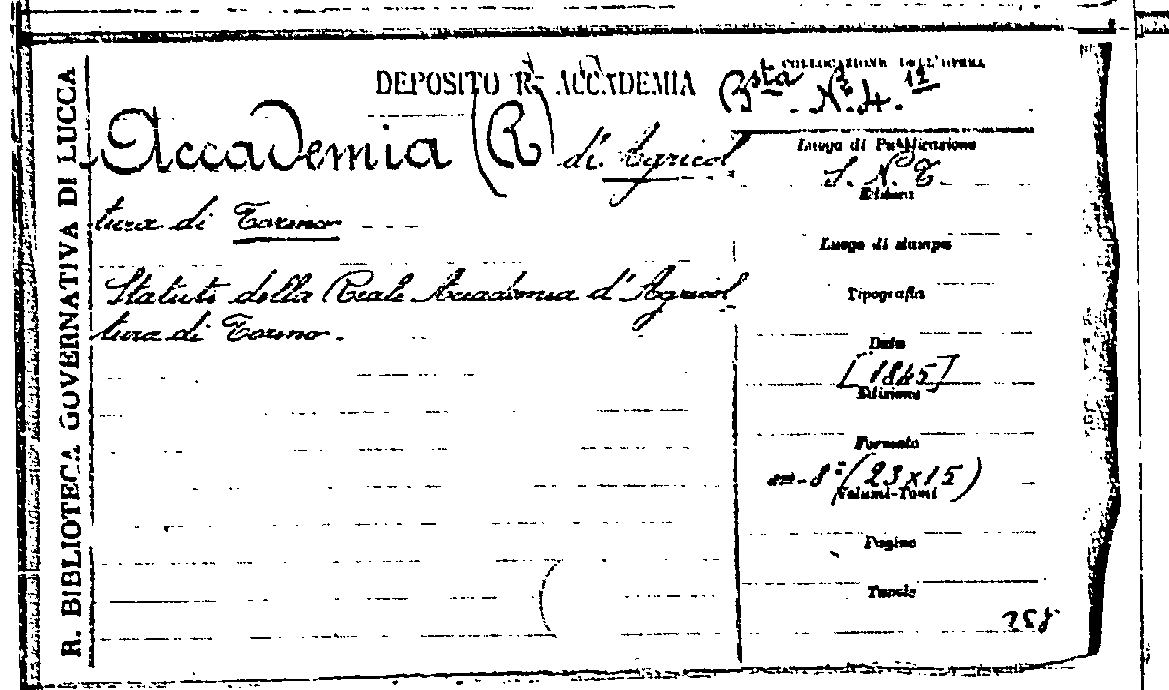 R. BIBLIOTECA GOVERNATIVA DI LUCCA
DEPOSITO R. ACCADEMIA
COLLOCAZIONE DELL'OPERA
Bsta N. 4. 12
Accademia (R) di Agricol
tura di Torino
Statuto della Reale Accademia d'Agricol
tura di Torino.
Luogo di Pubblicazione
S. N. T.
Editore
Luogo di stampa
Tipografia
Data
[1845]
Edizione
Formato
in-8° (23x15)
Volumi-Tomi
Pagine
Tavole
258